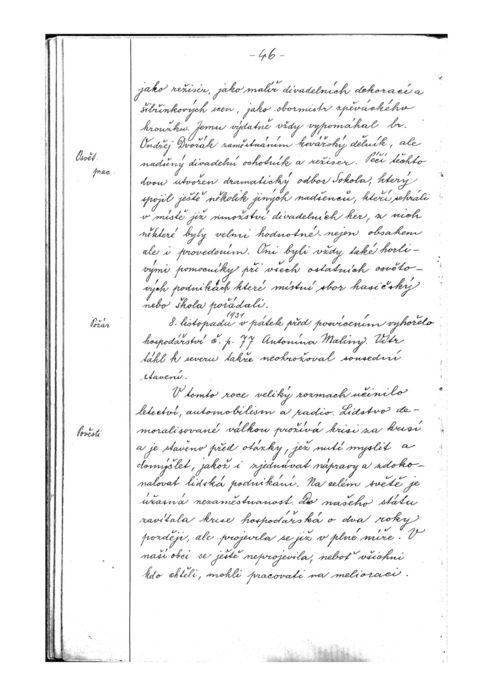 - 46 -
jako režisér, jako malíř divadelních dekorací a
šibřinkových scen, jako sbormistr zpěváckého
kroužku. Jemu vydatně vždy vypomáhal br.
Ondřej Dvořák zaměstnáním kovářský dělník, ale
Osvět. prac.
nadšený divadelní ochotník a režiser. Péčí těchto
dvou utvořen dramatický odbor Sokola, který
spojil ještě několik jiných nadšenců, kteří sehráli
v místě již množství divadelních her, z nich
některé byly velmi hodnotné nejen obsahem
ale i provedením. Oni byli vždy také horli-
vými pomocníky při všech ostatních osvěto-
vých podnikách které místní sbor hasičský
nebo škola pořádali.
Požár
8. listopadu 1931 v pátek před posvícením vyhořelo
hospodářství č. p. 77 Antonína Maliny. Vítr
táhl k severu takže neohrožoval sousední
stavení.
V tomto roce veliký rozmach učinilo
letectví, automobilism a radio. Lidstvo de-
Pověsti
moralisované válkou prožívá krisi za krisí
a je stavěno před otázky, jež nutí myslit a
domýšlet, jakož i zjednávat nápravy a zdoko-
nalovat lidská podnikání. Na celém světě je
úžasná nezaměstnanost. Do našeho státu
zavítala krise hospodářská o dva roky
později, ale projevila se již v plné míře. V
naší obci se ještě neprojevila, neboť všichni
kdo chtěli, mohli pracovati na melioraci.